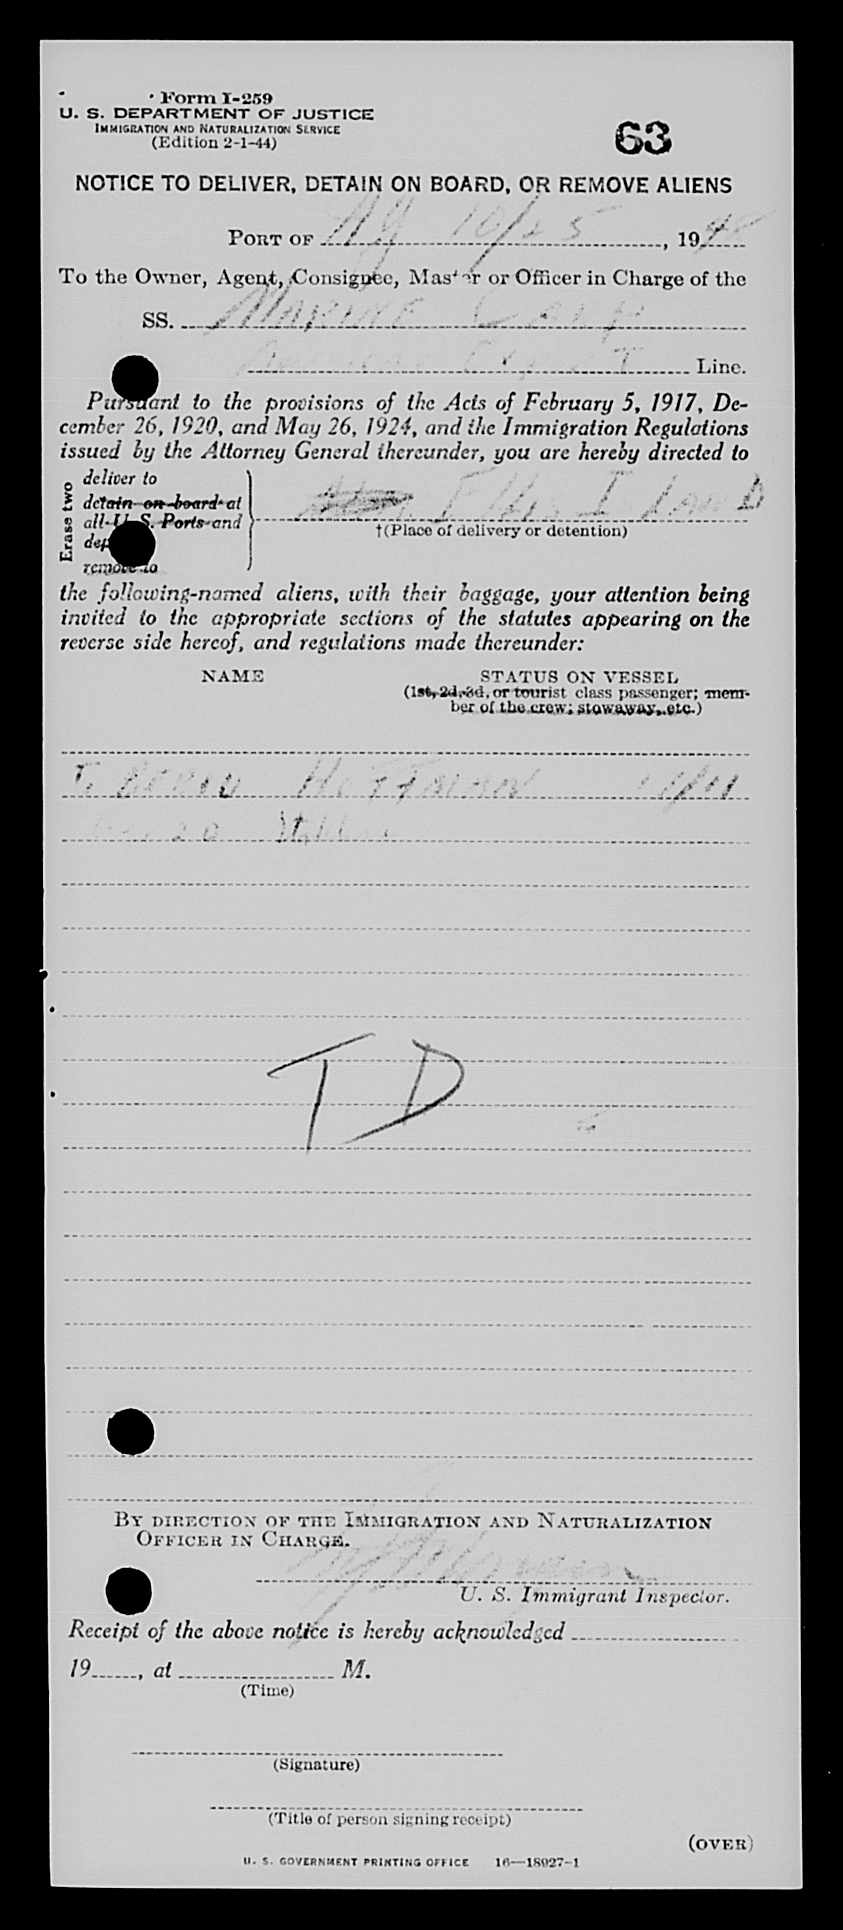 Form I-259
U. S. DEPARTMENT OF JUSTICE
IMMIGRATION AND NATURALIZATION SERVICE
(Edition 2-1-44)
63
NOTICE TO DELIVER, DETAIN ON BOARD, OR REMOVE ALIENS
PORT OF NY 10/25, 1948
To the Owner, Agent, Consignee, Master or Officer in Charge of the
SS. MARINE CARP
American Export Line.
Pursuant to the provisions of the Acts of February 5, 1917, De-
cember 26, 1920, and May 26, 1924, and the Immigration Regulations
issued by the Attorney General thereunder, you are hereby directed to
Erase two
deliver to
detain on board at
all U. S. Ports and
remove to
Ellis Island
†(Place of delivery or detention)
the following-named aliens, with their baggage, your attention being
invited to the appropriate sections of the statutes appearing on the
reverse side hereof, and regulations made thereunder:
NAME STATUS ON VESSEL
(1st, 2d, 3d, or tourist class passenger; mem-
ber of the crew; stowaway, etc.)
HOFFMAN
TD
BY DIRECTION OF THE IMMIGRATION AND NATURALIZATION
OFFICER IN CHARGE.
U. S. Immigrant Inspector.
Receipt of the above notice is hereby acknowledged
19, at M.
(Time)
(Signature)
(Title of person signing receipt)
(OVER)
U. S. GOVERNMENT PRINTING OFFICE 16—18927-1